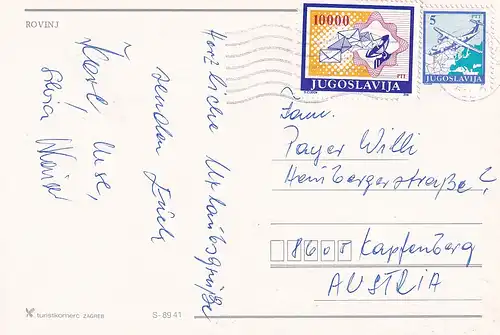 ROVINJ
Herzliche Urlaubsgrüße
senden Euch
Karl, Inse,
Silvia
10000
PTT
JUGOSLAVIJA
5
PTT
JUGOSLAVIJA
Fam.
Payer Willi
Hamburgerstraße 2
8605 Kapfenberg
AUSTRIA
turistkomerc ZAGREB
S-8941